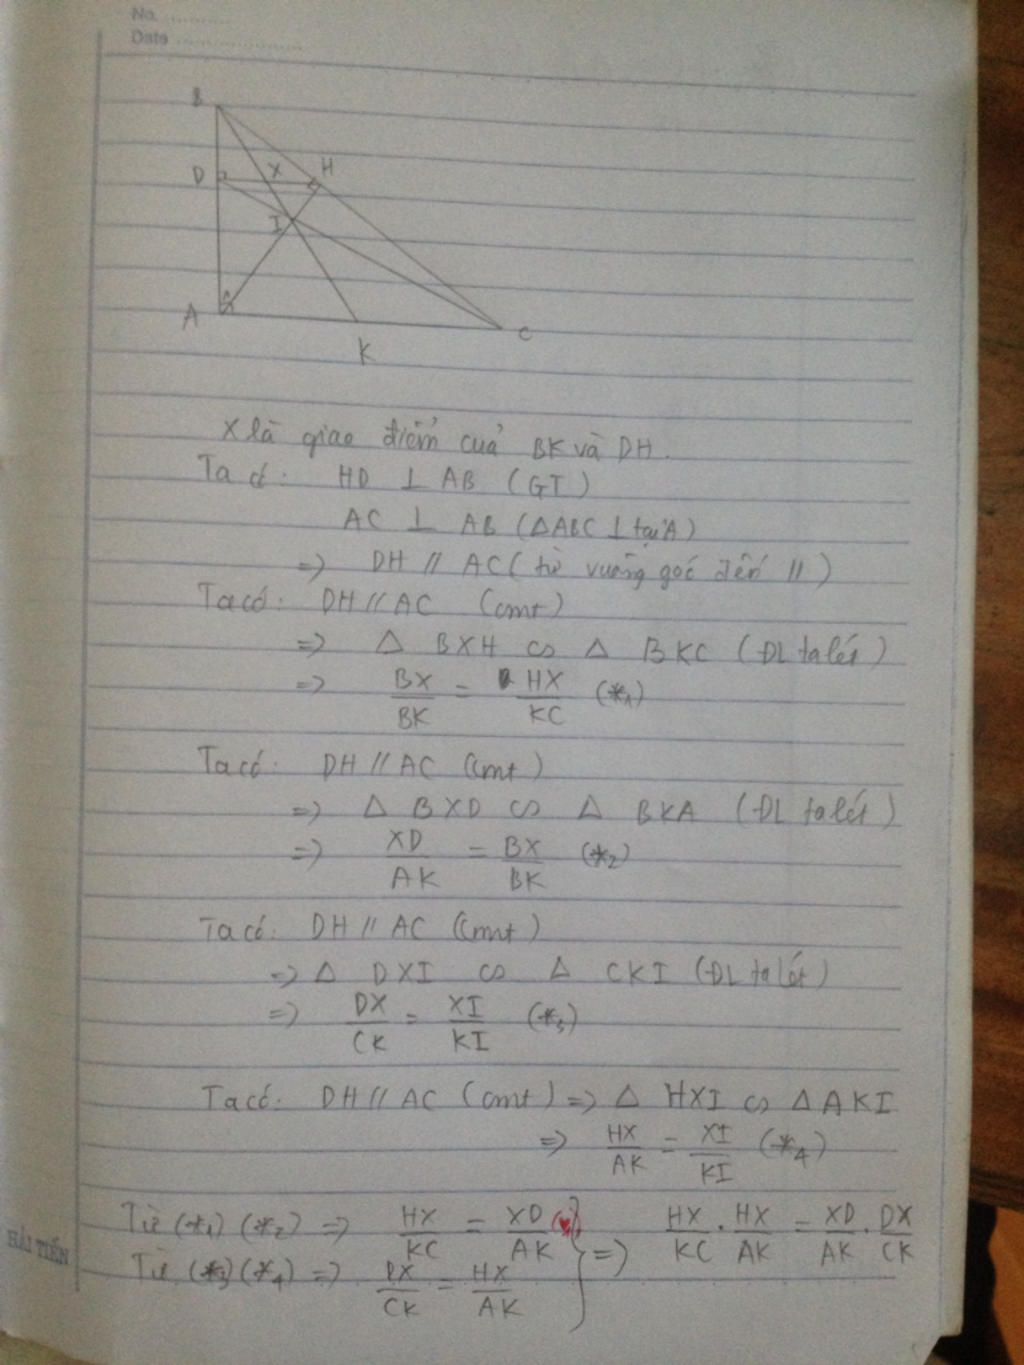 No. ............
Date .....................
B
D X H
I
A C
K
X là giao điểm của BK và DH.
Ta có: HD ⊥ AB (GT)
AC ⊥ AB (△ABC ⊥ tại A)
=> DH // AC (từ vuông góc đến //)
Ta có: DH // AC (cmt)
=> △ BXH ∽ △ BKC (ĐL talét)
=> BX/BK = HX/KC (*1)
Ta có: DH // AC (cmt)
=> △ BXD ∽ △ BKA (ĐL talét)
=> XD/AK = BX/BK (*2)
Ta có: DH // AC (cmt)
=> △ DXI ∽ △ CKI (ĐL talét)
=> DX/CK = XI/KI (*3)
Ta có: DH // AC (cmt) => △ HXI ∽ △ AKI
=> HX/AK = XI/KI (*4)
Từ (*1) (*2) => HX/KC = XD/AK (♥) } => HX/KC . HX/AK = XD/AK . DX/CK
Từ (*3) (*4) => DX/CK = HX/AK
HẢI TIẾN